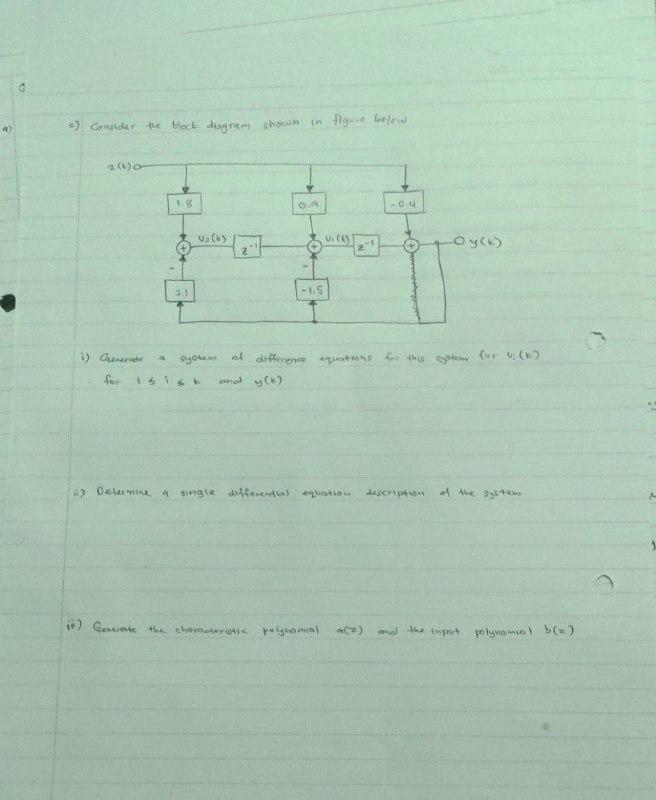 c) Consider the block diagram shown in figure below
x(k)
1.8
0.9
-0.4
+
u2(k)
z⁻¹
+
u1(k)
z⁻¹
+
y(k)
-
-
2.1
-1.5
i) Generate a system of difference equations for this system for ui(k)
for 1 ≤ i ≤ k and y(k)
ii) Determine a single differential equation description of the system
iii) Generate the characteristic polynomial a(z) and the input polynomial b(z)